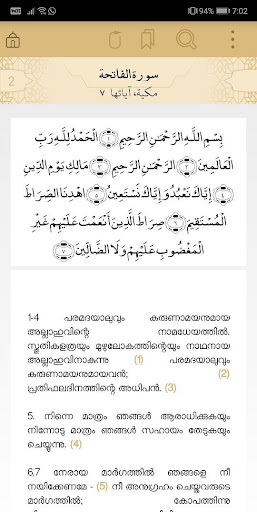 94% 7:02
سورة الفاتحة
2
مكية، آياتها ٧
بِسْمِ اللَّهِ الرَّحْمَٰنِ الرَّحِيمِ ﴿١﴾ الْحَمْدُ لِلَّهِ رَبِّ
الْعَالَمِينَ ﴿٢﴾ الرَّحْمَٰنِ الرَّحِيمِ ﴿٣﴾ مَالِكِ يَوْمِ الدِّينِ
﴿٤﴾ إِيَّاكَ نَعْبُدُ وَإِيَّاكَ نَسْتَعِينُ ﴿٥﴾ اهْدِنَا الصِّرَاطَ
الْمُسْتَقِيمَ ﴿٦﴾ صِرَاطَ الَّذِينَ أَنْعَمْتَ عَلَيْهِمْ غَيْرِ
الْمَغْضُوبِ عَلَيْهِمْ وَلَا الضَّالِّينَ ﴿٧﴾
1-4 പരമദയാലുവും കരുണാമയനുമായ
അല്ലാഹുവിന്റെ നാമധേയത്തിൽ.
സ്തുതികളത്രയും മുഴുലോകത്തിന്റെയും നാഥനായ
അല്ലാഹുവിനാകുന്നു (1) പരമദയാലുവും
കരുണാമയനുമായവൻ; (2)
പ്രതിഫലദിനത്തിന്റെ അധിപൻ. (3)
5. നിന്നെ മാത്രം ഞങ്ങൾ ആരാധിക്കുകയും
നിന്നോടു മാത്രം ഞങ്ങൾ സഹായം തേടുകയും
ചെയ്യുന്നു. (4)
6,7 നേരായ മാർഗത്തിൽ ഞങ്ങളെ നീ
നയിക്കേണമേ - (5) നീ അനുഗ്രഹം ചെയ്തവരുടെ
മാർഗത്തിൽ; കോപത്തിന്നു